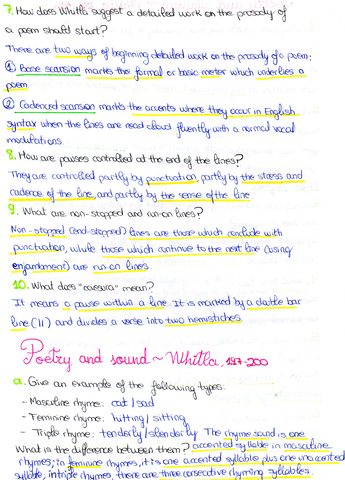 7. How does Whitla suggest a detailed work on the prosody of
a poem should start?
There are two ways of beginning detailed work on the prosody of a poem:
① Base scansion marks the formal or basic meter which underlies a
poem
② Cadenced scansion marks the accents where they occur in English
syntax when the lines are read aloud fluently with a normal vocal
modulations.
8. How are pauses controlled at the end of the lines?
They are controlled partly by punctuation, partly by the stress and
cadence of the line, and partly by the sense of the line.
9. What are non-stopped and run-on lines?
Non-stopped (end-stopped) lines are those which conclude with
punctuation, while those which continue to the next line (using
enjambment) are run-on lines.
10. What does "caesura" mean?
It means a pause within a line. It is marked by a double bar
line (||) and divides a verse into two hemistiches.
Poetry and sound ~ Whitla, 197-200
a. Give an example of the following types:
- Masculine rhyme: cat / sad
- Feminine rhyme: hitting / sitting
- Triple rhyme: tenderly / slenderly The rhyme sound is one
What is the difference between them? accented syllable in masculine
rhymes; in feminine rhymes, it is one accented syllable plus one unaccented
syllable, in triple rhymes, there are three consecutive rhyming syllables.